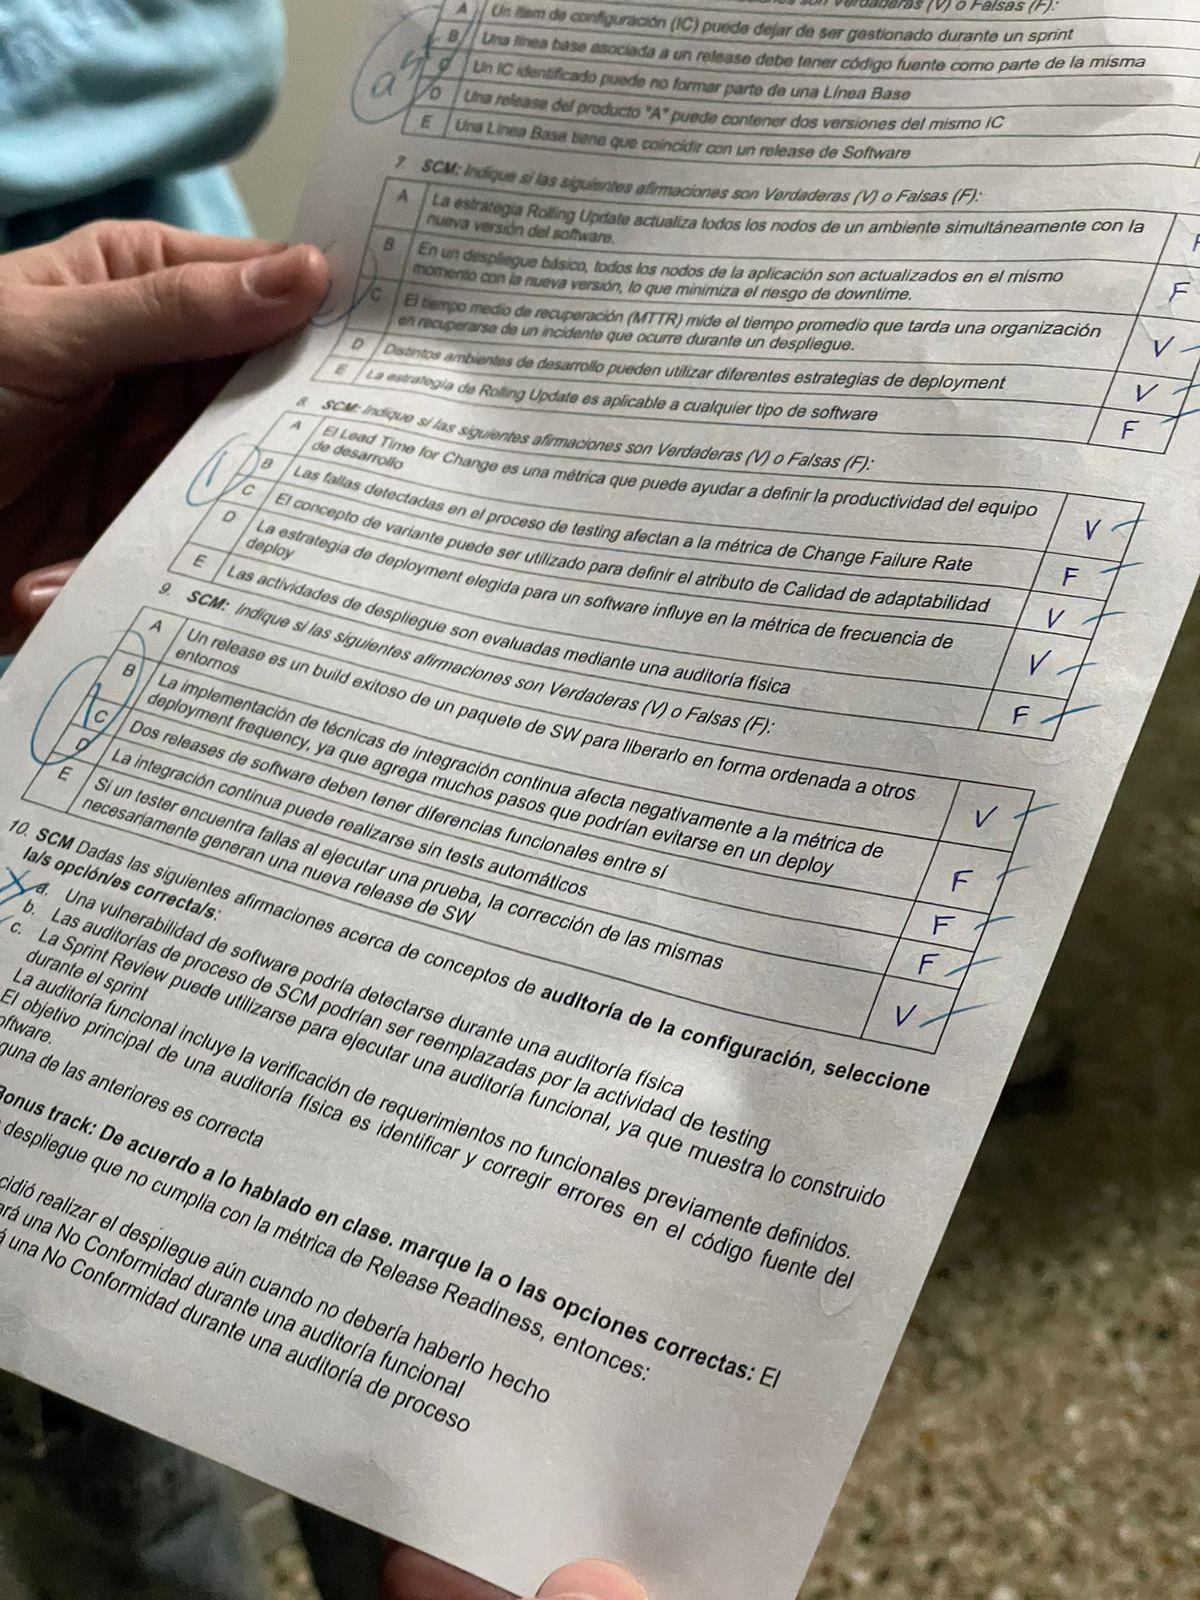 son Verdaderas (V) o Falsas (F):
A Un ítem de configuración (IC) puede dejar de ser gestionado durante un sprint
B Una línea base asociada a un release debe tener código fuente como parte de la misma
C Un IC identificado puede no formar parte de una Línea Base
D Una release del producto "A" puede contener dos versiones del mismo IC
E Una Línea Base tiene que coincidir con un release de Software
7. SCM: Indique si las siguientes afirmaciones son Verdaderas (V) o Falsas (F):
A La estrategia Rolling Update actualiza todos los nodos de un ambiente simultáneamente con la
nueva versión del software. F
B En un despliegue básico, todos los nodos de la aplicación son actualizados en el mismo
momento con la nueva versión, lo que minimiza el riesgo de downtime. F
C El tiempo medio de recuperación (MTTR) mide el tiempo promedio que tarda una organización
en recuperarse de un incidente que ocurre durante un despliegue. V
D Distintos ambientes de desarrollo pueden utilizar diferentes estrategias de deployment V
E La estrategia de Rolling Update es aplicable a cualquier tipo de software F
8. SCM: Indique si las siguientes afirmaciones son Verdaderas (V) o Falsas (F):
1
A El Lead Time for Change es una métrica que puede ayudar a definir la productividad del equipo
de desarrollo V
B Las fallas detectadas en el proceso de testing afectan a la métrica de Change Failure Rate F
C El concepto de variante puede ser utilizado para definir el atributo de Calidad de adaptabilidad V
D La estrategia de deployment elegida para un software influye en la métrica de frecuencia de
deploy V
E Las actividades de despliegue son evaluadas mediante una auditoría física F
9. SCM: Indique si las siguientes afirmaciones son Verdaderas (V) o Falsas (F):
1
A Un release es un build exitoso de un paquete de SW para liberarlo en forma ordenada a otros
entornos V
B La implementación de técnicas de integración continua afecta negativamente a la métrica de
deployment frequency, ya que agrega muchos pasos que podrían evitarse en un deploy F
C Dos releases de software deben tener diferencias funcionales entre sí F
D La integración continua puede realizarse sin tests automáticos F
E Si un tester encuentra fallas al ejecutar una prueba, la corrección de las mismas
necesariamente generan una nueva release de SW V
10. SCM Dadas las siguientes afirmaciones acerca de conceptos de auditoría de la configuración, seleccione
la/s opción/es correcta/s:
a. Una vulnerabilidad de software podría detectarse durante una auditoría física
b. Las auditorías de proceso de SCM podrían ser reemplazadas por la actividad de testing
c. La Sprint Review puede utilizarse para ejecutar una auditoría funcional, ya que muestra lo construido
durante el sprint
La auditoría funcional incluye la verificación de requerimientos no funcionales previamente definidos.
El objetivo principal de una auditoría física es identificar y corregir errores en el código fuente del
oftware.
guna de las anteriores es correcta
Bonus track: De acuerdo a lo hablado en clase. marque la o las opciones correctas: El
despliegue que no cumplia con la métrica de Release Readiness, entonces:
cidió realizar el despliegue aún cuando no debería haberlo hecho
ará una No Conformidad durante una auditoría funcional
á una No Conformidad durante una auditoría de proceso